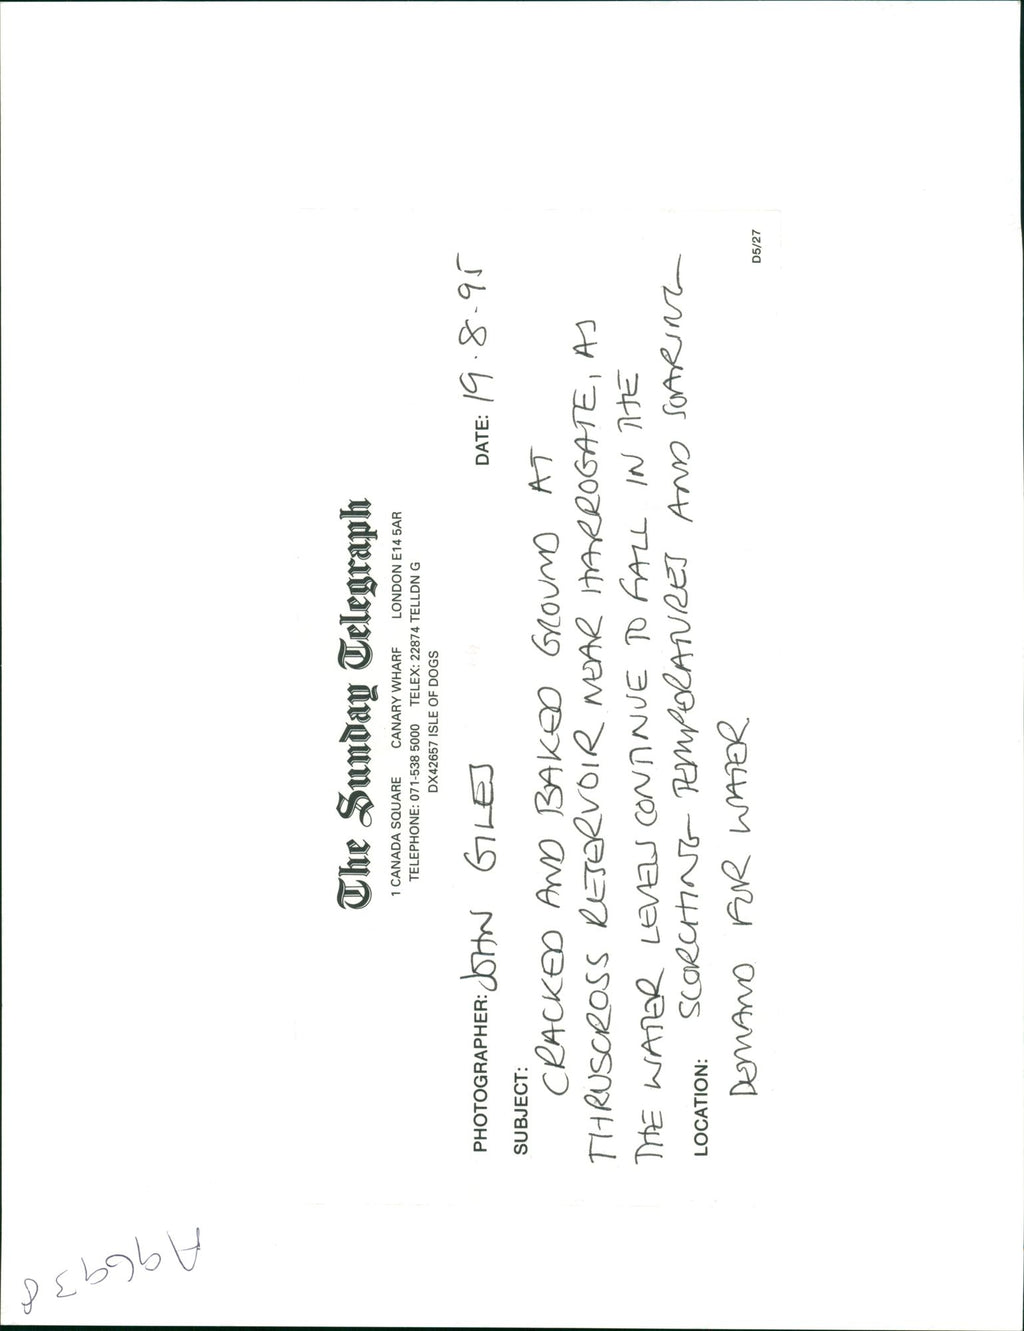 The Sunday Telegraph
1 CANADA SQUARE CANARY WHARF LONDON E14 5AR
TELEPHONE: 071-538 5000 TELEX: 22874 TELLDN G
DX42657 ISLE OF DOGS
PHOTOGRAPHER: JOHN GILES DATE: 19.8.95
SUBJECT:
CRACKED AND BAKED GROUND AT
THRUSCROSS RESERVOIR NEAR HARROGATE, AS
THE WATER LEVELS CONTINUE TO FALL IN THE
LOCATION: SCORCHING TEMPORATURES AND SOARING
DEMAND FOR WATER
D5/27
A96938